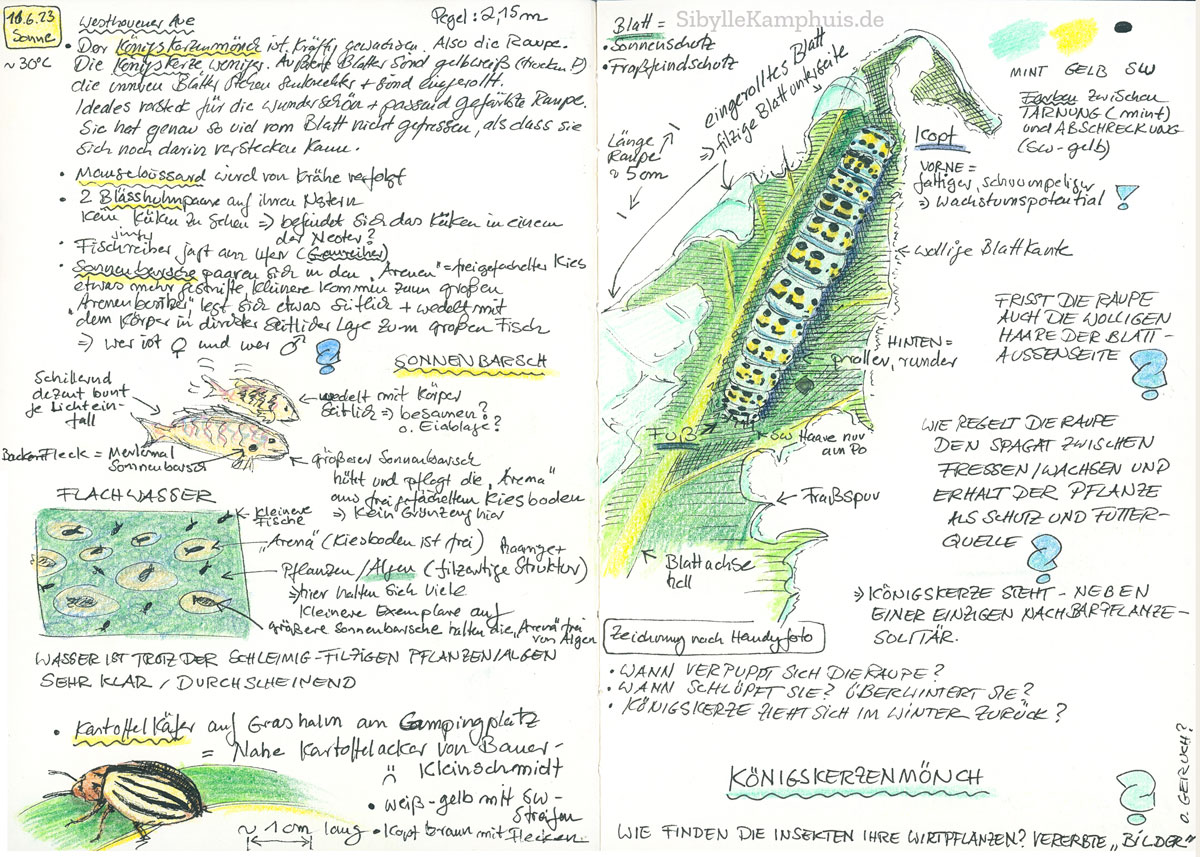 11.6.23
Sonne
~30°C
Westhovener Aue
Pegel: 2,15m
• Der Königskerzenmönch ist kräftig gewachsen. Also die Raupe.
Die Königskerze weniger. Äußere Blätter sind gelbweiß (trocken)
die innren Blätter stehen senkrechter + sind eingerollt.
Ideales Versteck für die wunderschön + passend gefärbte Raupe.
Sie hat genau so viel vom Blatt nicht gefressen, als dass sie
sich noch darin verstecken kann.
• Mäusebussard wird von Krähe verfolgt
• 2 Blässhuhnpaare auf ihren Nestern
Kein Küken zu sehen => befindet sich das Küken in einem
der Nester?
• Fischreiher jagt am Ufer (Graureiher)
• Sonnenbarsche paaren sich in den „Arenen" = freigefächelter Kies
etwas mehr gestreifte, kleinere kommen zum großen
„Arenenbesitzer", legt sich etwas seitlich + wedelt mit
dem Körper in direkter seitlicher Lage zum großen Fisch
=> wer ist ♀ und wer ♂ ?
SONNENBARSCH
Schillernd
dezent bunt
je Lichtein-
fall
wedelt mit Körper
seitlich => besamen?
o. Eiablage?
Backen-Fleck = Merkmal
Sonnenbarsch
größerer Sonnenbarsch
hütet und pflegt die „Arena"
aus freigefächeltem Kiesboden
=> Kein Grünzeug hier
FLACHWASSER
kleinere
Fische
„Arena" (Kiesboden ist frei)
Pflanzen/Algen (filzartige Struktur)
=> hier halten sich viele
kleinere Exemplare auf
größere Sonnenbarsche halten die „Arena" frei
von Algen
WASSER IST TROTZ DER SCHLEIMIG-FILZIGEN PFLANZEN/ALGEN
SEHR KLAR / DURCHSCHEINEND
• Kartoffelkäfer auf Grashalm am Campingplatz
= Nahe Kartoffelacker von Bauer
Kleinschmidt
• weiß-gelb mit SW-
Streifen
• Kopf braun mit Flecken
~ 1cm lang
Blatt =
• Sonnenschutz
• Fraßfeindschutz
SibylleKamphuis.de
eingerolltes Blatt
=> filzige Blattunterseite
Länge
Raupe
~ 5cm
MINT GELB SW
Farben zwischen
TARNUNG (mint)
und ABSCHRECKUNG
(SW-gelb)
Kopf
VORNE =
faltiger, schrumpeliger
=> Wachstumspotential !
wollige Blattkante
FRISST DIE RAUPE
AUCH DIE WOLLIGEN
HAARE DER BLATT-
AUSSENSEITE ?
HINTEN =
praller, runder
Fuß
SW Haare nur
am Po
WIE REGELT DIE RAUPE
DEN SPAGAT ZWISCHEN
FRESSEN/WACHSEN UND
ERHALT DER PFLANZE
ALS SCHUTZ UND FUTTER-
QUELLE ?
Fraßspur
Blattachse
hell
=> KÖNIGSKERZE STEHT - NEBEN
EINER EINZIGEN NACHBARPFLANZE -
SOLITÄR.
Zeichnung nach Handyfoto
• WANN VERPUPPT SICH DIE RAUPE?
• WANN SCHLÜPFT SIE? ÜBERWINTERT SIE?
• KÖNIGSKERZE ZIEHT SICH IM WINTER ZURÜCK?
KÖNIGSKERZENMÖNCH
?
WIE FINDEN DIE INSEKTEN IHRE WIRTPFLANZEN? VERERBTE „BILDER"
O. GERUCH?